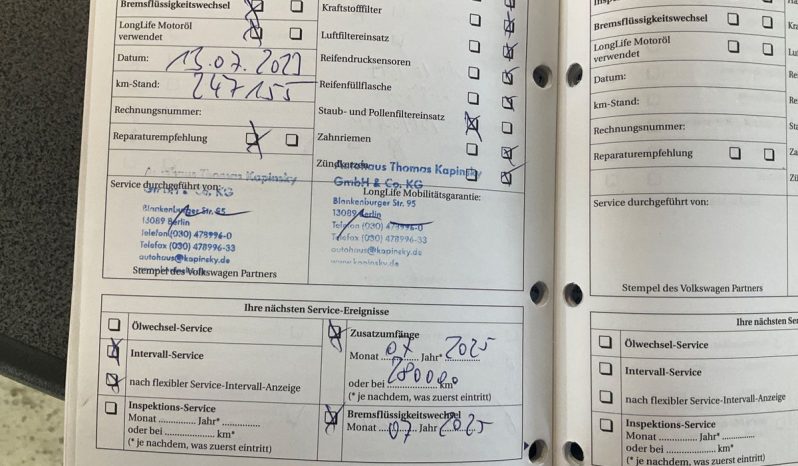 Bremsflüssigkeitswechsel
LongLife Motoröl
verwendet
Datum: 13.07.2023
km-Stand: 247155
Rechnungsnummer:
Reparaturempfehlung
Kraftstofffilter
Luftfiltereinsatz
Reifendrucksensoren
Reifenfüllflasche
Staub- und Pollenfiltereinsatz
Zahnriemen
Service durchgeführt von:
Autohaus Thomas Kapinsky
GmbH & Co. KG
Blankenburger Str. 95
13089 Berlin
Telefon (030) 478996-0
Telefax (030) 478996-33
autohaus@kapinsky.de
Stempel des Volkswagen Partners
Autohaus Thomas Kapinsky
GmbH & Co. KG
LongLife Mobilitätsgarantie:
Blankenburger Str. 95
13089 Berlin
Telefon (030) 478996-0
Telefax (030) 478996-33
autohaus@kapinsky.de
www.kapinsky.de
Ihre nächsten Service-Ereignisse
Ölwechsel-Service
Intervall-Service
nach flexibler Service-Intervall-Anzeige
Inspektions-Service
Monat .............. Jahr* ..............
oder bei .................... km*
(* je nachdem, was zuerst eintritt)
Zusatzumfänge
Monat 07 Jahr* 2025
oder bei 280000 km*
(* je nachdem, was zuerst eintritt)
Bremsflüssigkeitswechsel
Monat 07 Jahr 2025
Bremsflüssigkeitswechsel
LongLife Motoröl
verwendet
Datum:
km-Stand:
Rechnungsnummer:
Reparaturempfehlung
Service durchgeführt von:
Stempel des Volkswagen Partners
Ihre nächsten Ser
Ölwechsel-Service
Intervall-Service
nach flexibler Service-Intervall-Anzeige
Inspektions-Service
Monat .............. Jahr* ..............
oder bei .................... km*
(* je nachdem, was zuerst eintritt)